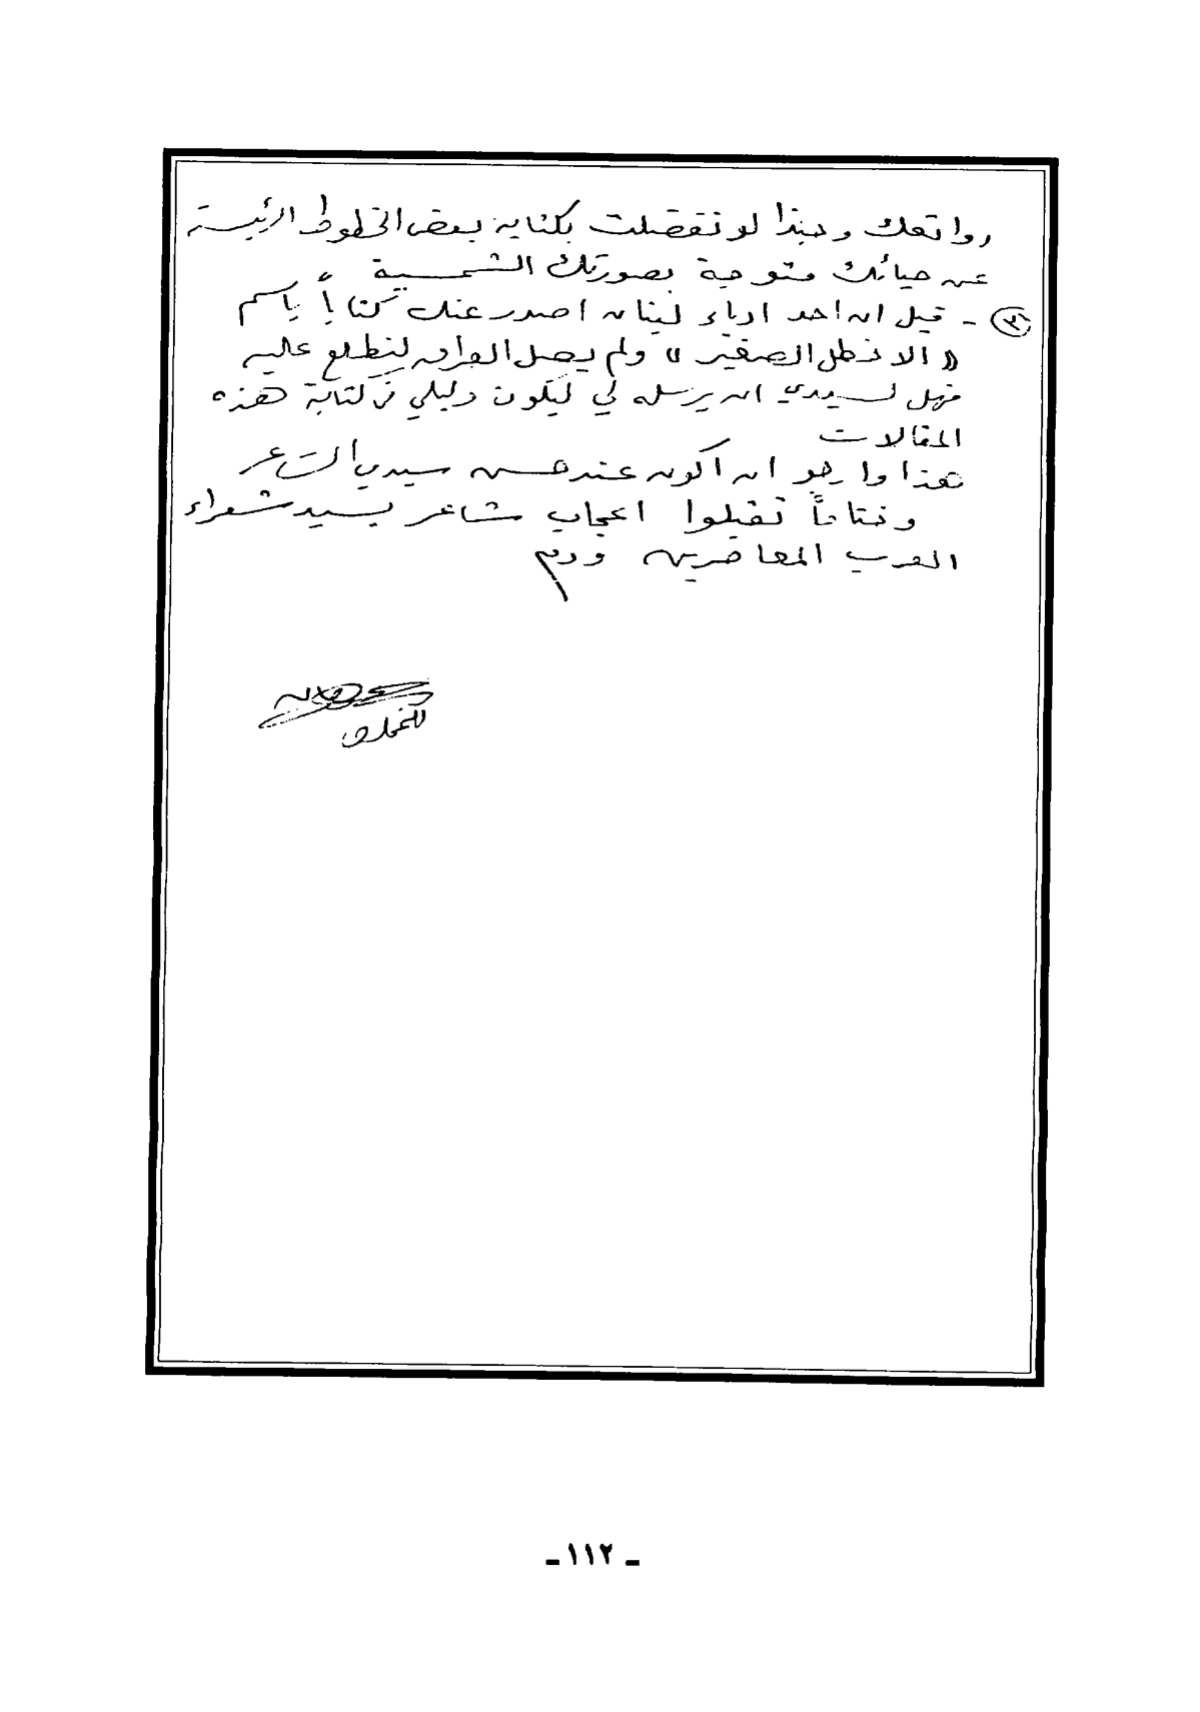 روائعك وحبذا لو تفضلت بكتابة بعض الخطوط الرئيسة
عن حياتك متوجة بصورتك الشمسية
٣ - قيل ان احد ادباء لبنان اصدر عنك كتاباً باسم
« الاخطل الصغير » ولم يصل العراق لنطلع عليه
فهل لسيدي ان يرسله لي ليكون دليلي في كتابة هذه
المقالات
هذا وارجو ان اكون عند حسن سيدي الشاعر
وختاماً تقبلوا اعجاب شاعر بسيد شعراء
العرب المعاصرين ودم
- ١١٢ -